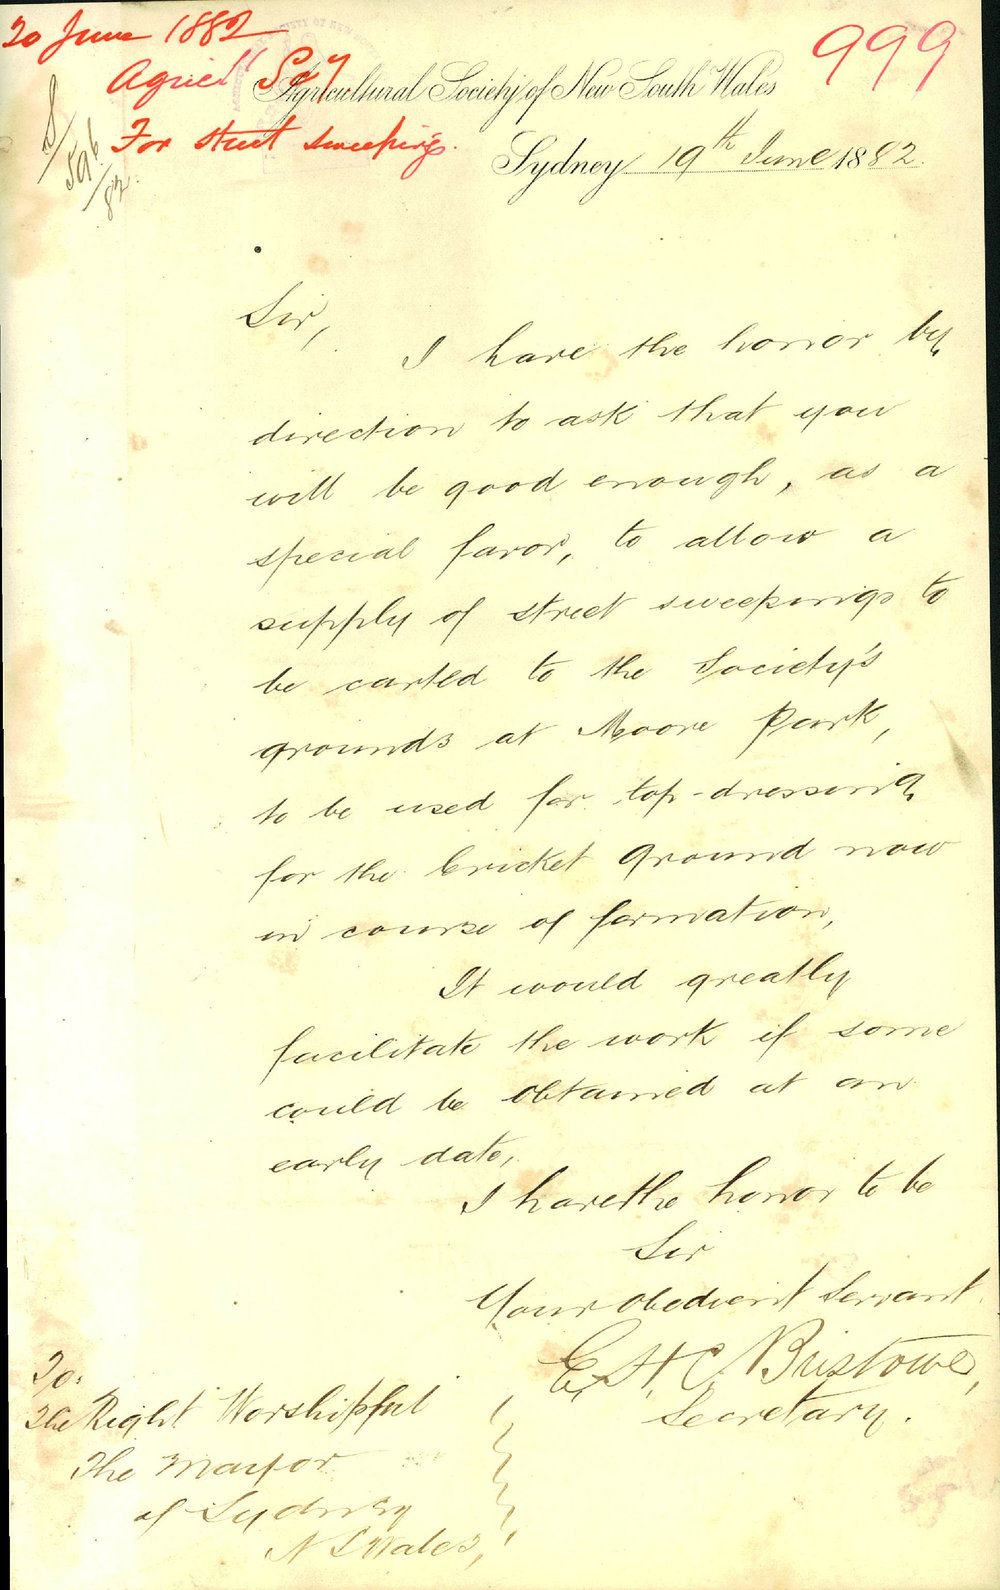 20 June 1882
999
Agricl Socy
Agricultural Society of New South Wales
For street sweepings.
Sydney 19th June 1882.
596
82
Sir,
I have the honor by
direction to ask that you
will be good enough, as a
special favor, to allow a
supply of street sweepings to
be carted to the Society's
grounds at Moore Park,
to be used for top-dressing
for the Cricket Ground now
in course of formation,
It would greatly
facilitate the work if some
could be obtained at an
early date,
I have the honor to be
Sir
Your obedient Servant
E. H. C. Bristowe,
Secretary.
To.
The Right Worshipful
The Mayor
of Sydney
N S Wales,